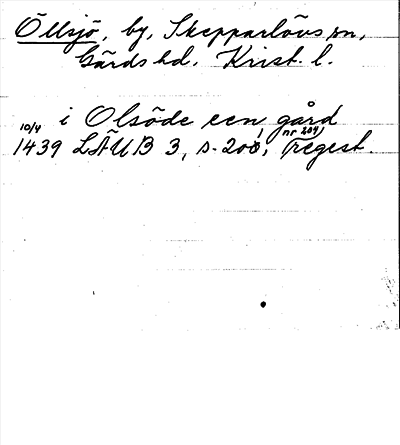 Öllsjö, by, Skepparlövs sn,
Gärds hd. Krist. l.
i Olsöde een gård
10/4 1439 LÄUB 3, s. 200, nr 204, regest.